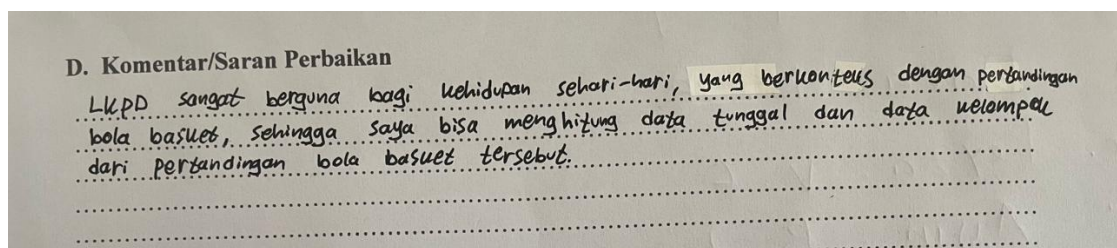 D. Komentar/Saran Perbaikan
LKPD sangat berguna bagi kehidupan sehari-hari, yang berkonteks dengan pertandingan
bola basket, sehingga saya bisa menghitung data tunggal dan data kelompok
dari pertandingan bola basket tersebut.